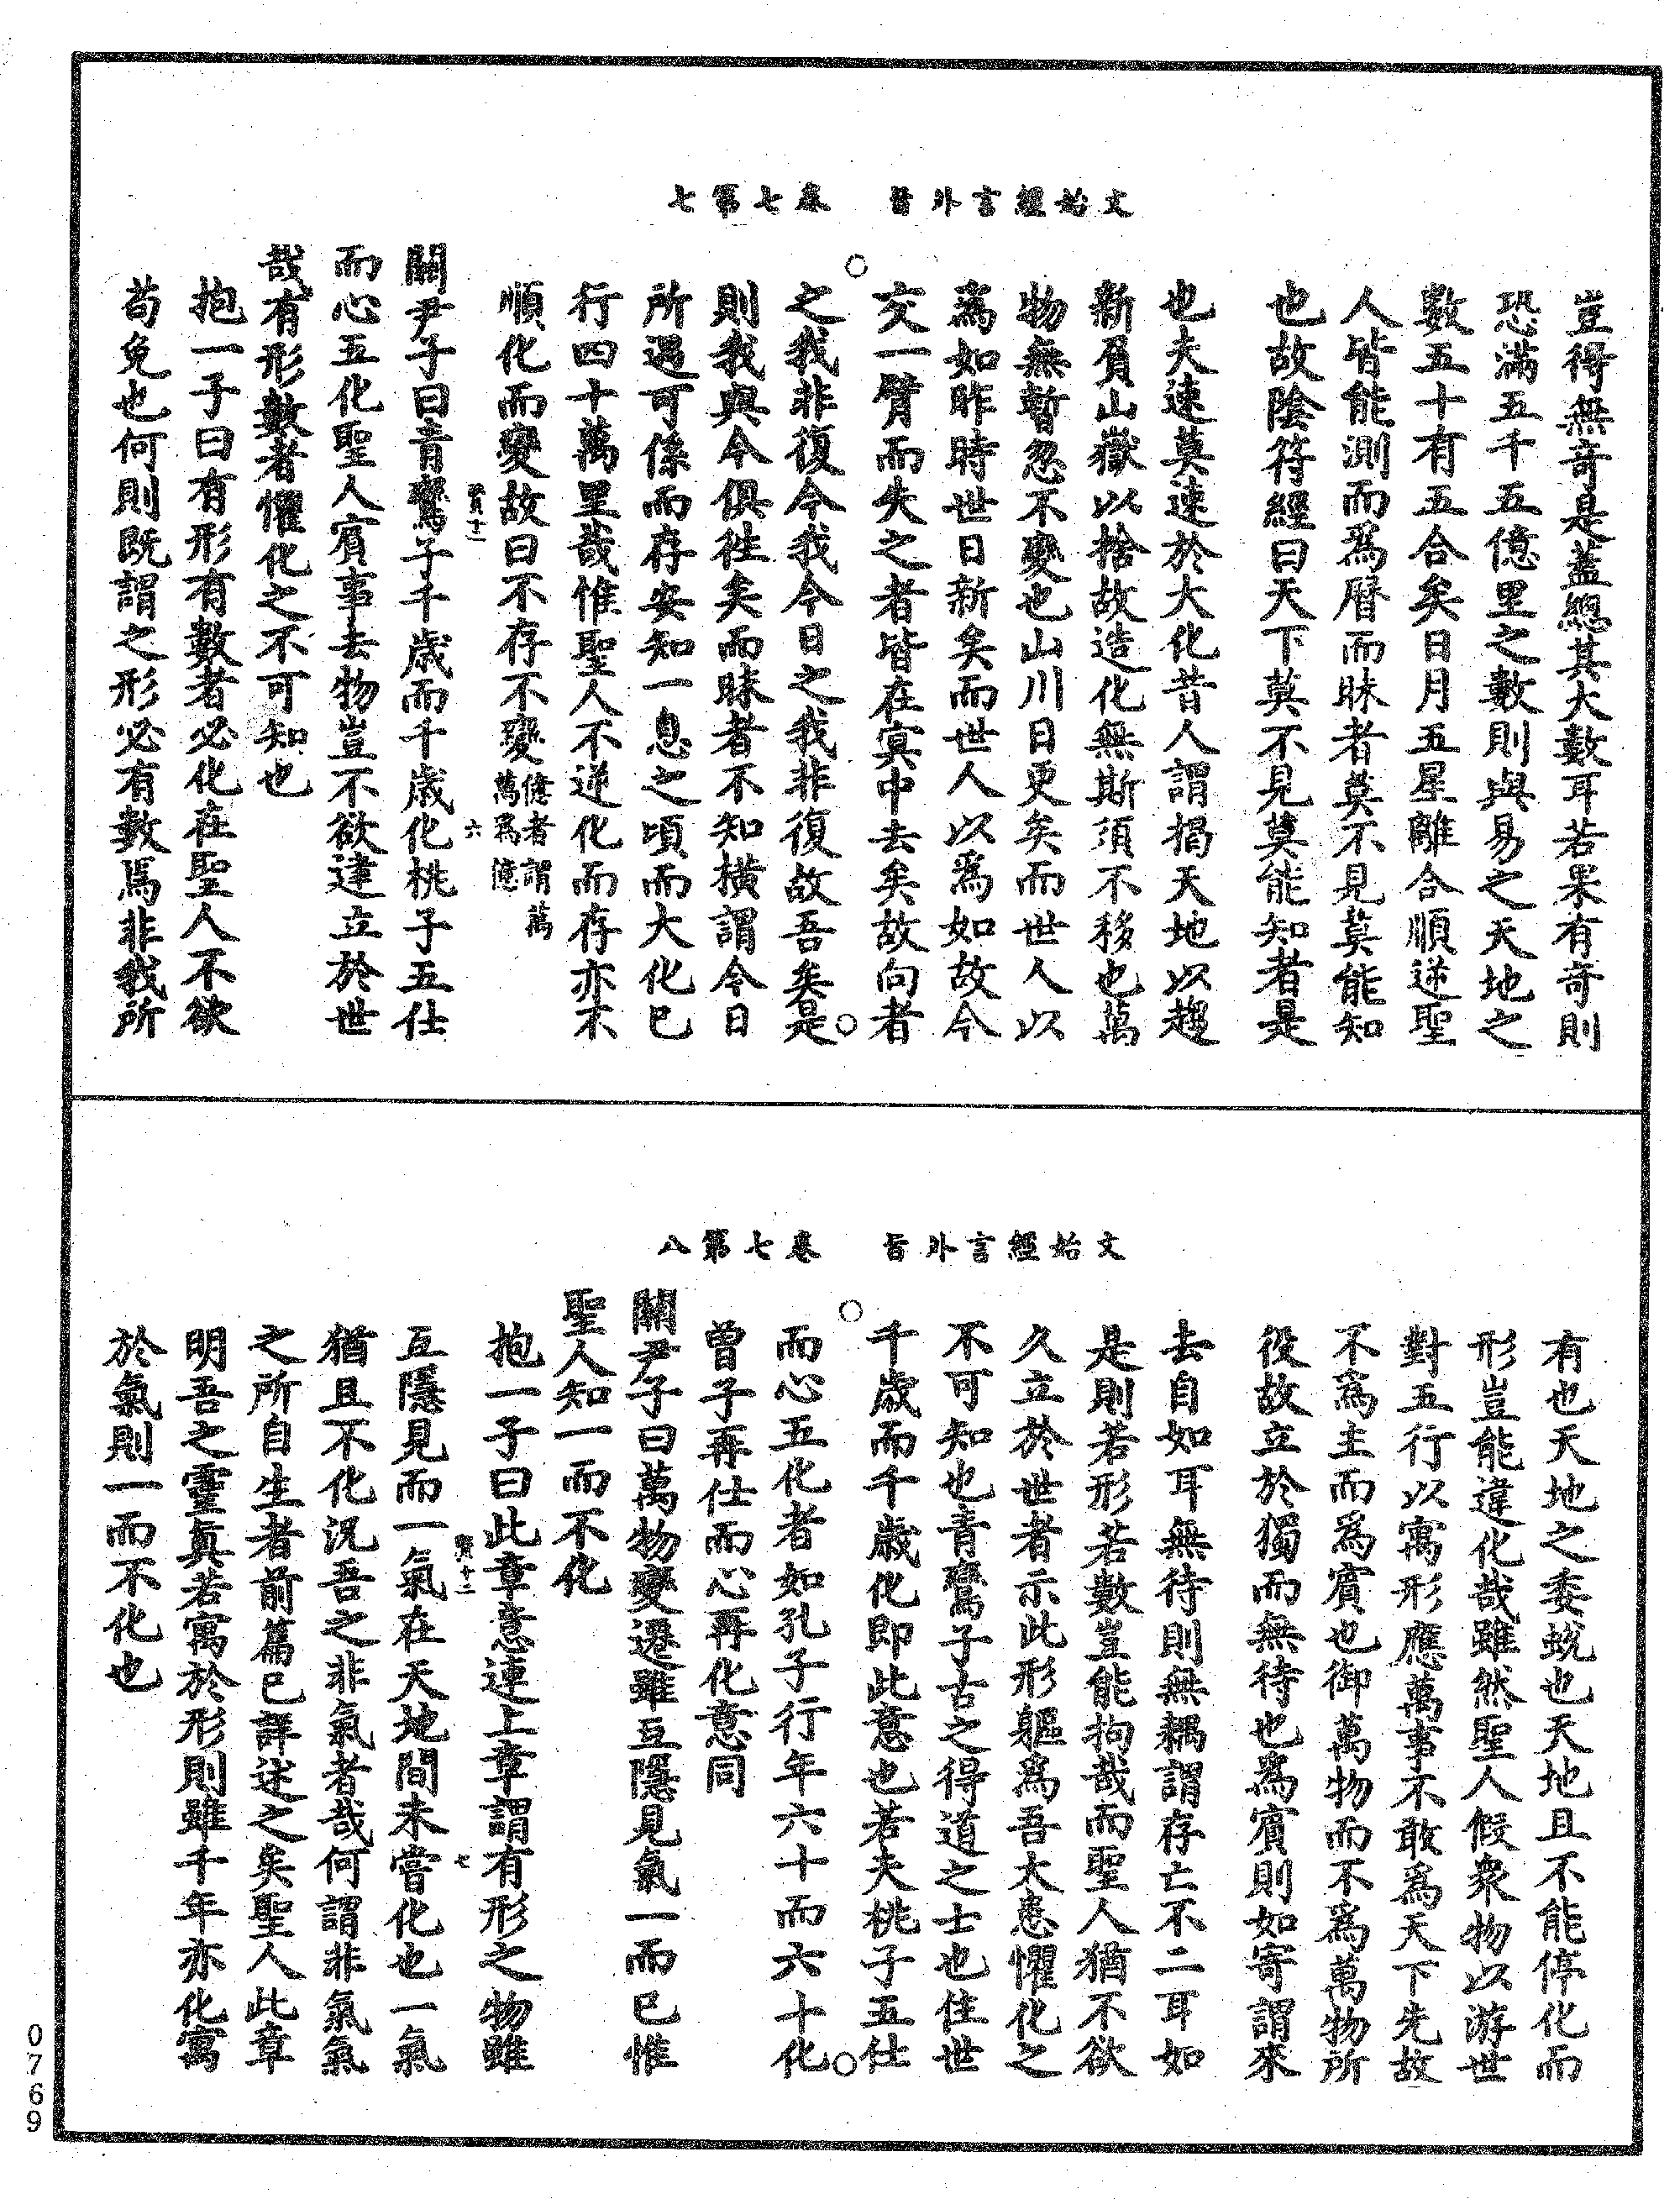 文始經言外旨　卷七第七
豈得無奇是蓋總其大數耳若果有奇則
恐滿五千五億里之數則與易之天地之
數五十有五合矣日月五星離合順逆聖
人皆能測而爲曆而昧者莫不見莫能知
也故陰符經曰天下莫不見莫能知者是
也夫速莫速於大化昔人謂揭天地以趨
新負山嶽以捨故造化無斯須不移也萬
物無暫忽不變也山川日更矣而世人以
爲如昨時世日新矣而世人以爲如故今
交一臂而失之者皆在冥中去矣故向者
之我非復今我今日之我非復故吾矣是
則我與今俱徃矣而昧者不知橫謂今日
所遇可係而存安知一息之頃而大化已
行四十萬里哉惟聖人不逆化而存亦不
順化而變故曰不存不變億者謂萬萬爲億
六
關尹子曰青鸞子千歲而千歲化桃子五仕
而心五化聖人賓事去物豈不欲建立於世
哉有形數者懼化之不可知也
抱一子曰有形有數者必化在聖人不欲
苟免也何則既謂之形必有數焉非我所
文始經言外旨　卷七第八
有也天地之委蛻也天地且不能停化而
形豈能違化哉雖然聖人假衆物以游世
對五行以寓形應萬事不敢爲天下先故
不爲主而爲賓也御萬物而不爲萬物所
役故立於獨而無待也爲賓則如寄謂來
去自如耳無待則無耦謂存亡不二耳如
是則若形若數豈能拘哉而聖人猶不欲
久立於世者示此形軀爲吾大患懼化之
不可知也青鸞子古之得道之士也住世
千歲而千歲化即此意也若夫桃子五仕
而心五化者如孔子行年六十而六十化
曾子再仕而心再化意同
關尹子曰萬物變遷雖互隱見氣一而已惟
聖人知一而不化
抱一子曰此章意連上章謂有形之物雖
七
互隱見而一氣在天地間未嘗化也一氣
猶且不化況吾之非氣者哉何謂非氣氣
之所自生者前篇已詳述之矣聖人此章
明吾之靈眞若寓於形則雖千年亦化寓
於氣則一而不化也
0769